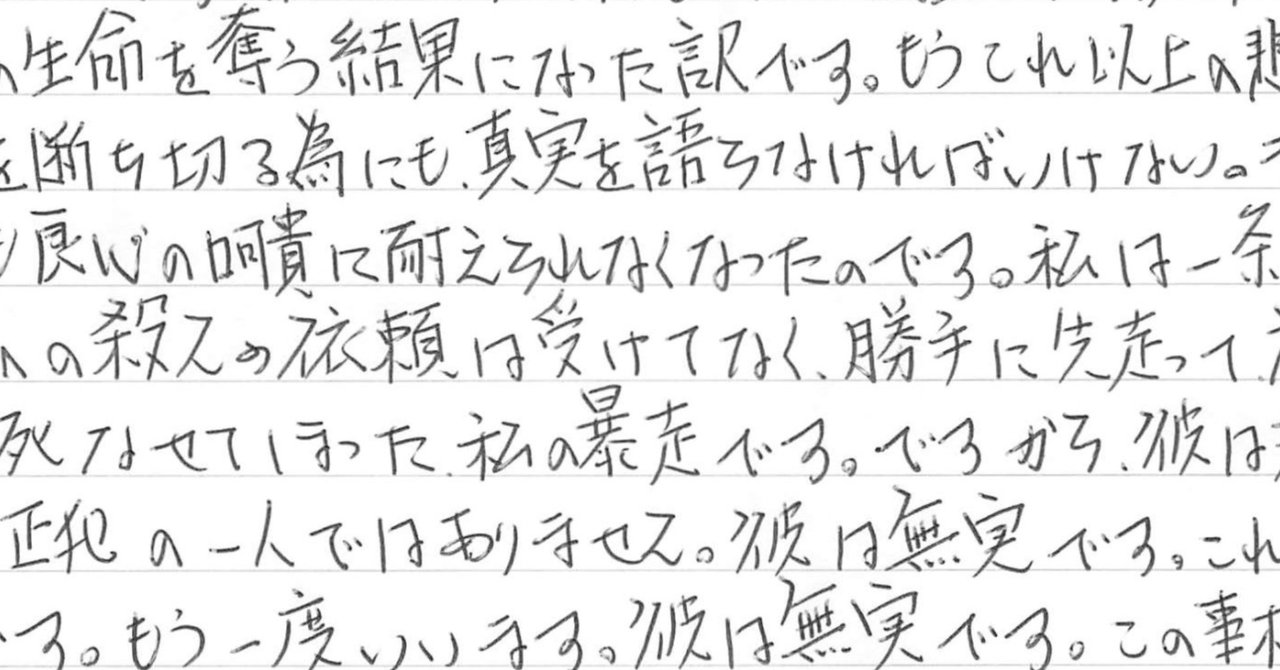 の生命を奪う結果になった訳です。もうこれ以上の悲
を断ち切る為にも、真実を語らなければいけない。
良心の呵責に耐えられなくなったのです。私は一条
への殺人の依頼は受けてなく、勝手に先走って、
死なせてしまった、私の暴走です。ですから、彼は
正犯の一人ではありません。彼は無実です。これ
す。もう一度いいます。彼は無実です。この事